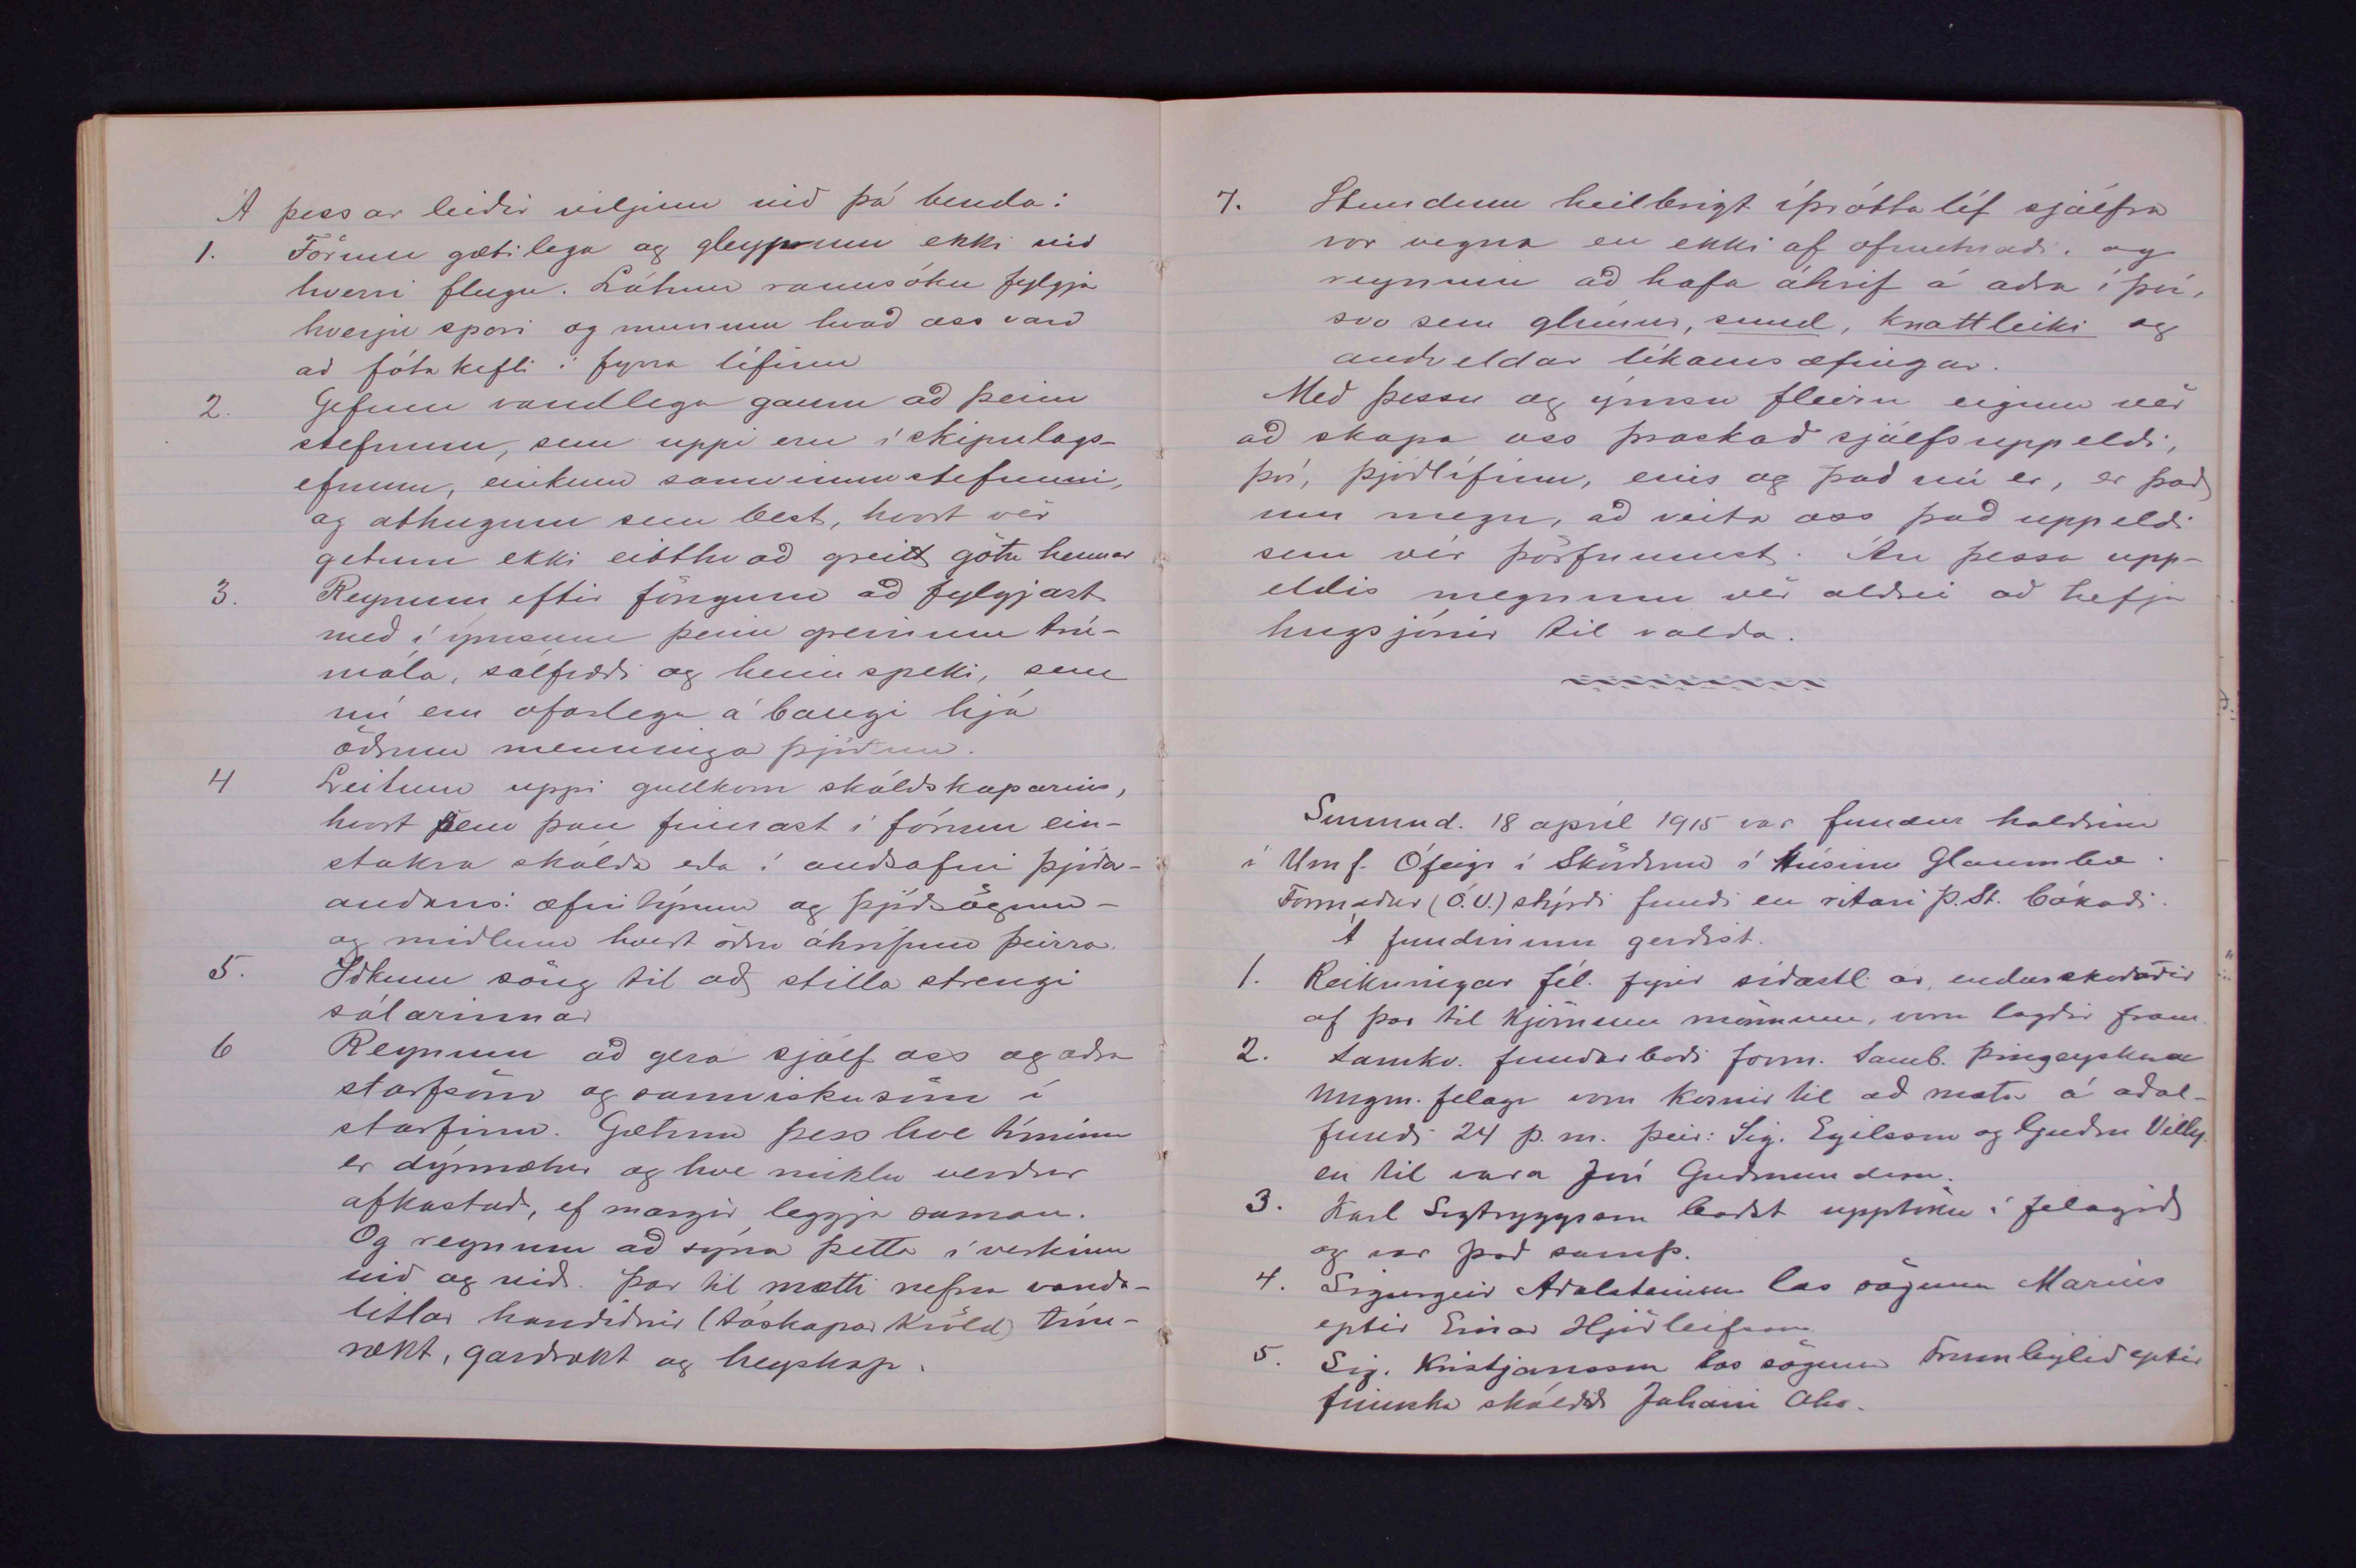 Á þessar leiðir viljum við þá benda:
1. Förum gætilega og gleypum ekki við
hverri flugu. Látum rannsókn fylgja
hverju spori og munum hvað oss varð
að fótakefli í fyrra lífinu
2. Gefum vandlega gaum að þeim
stefnum, sem uppi eru í skipulags-
efnum, einkum samvinnustefnunni,
og athugum sem best, hvort vér
getum ekki eitthvað greitt götu hennar
3. Reynum eftir föngum að fylgjast
með í ýmsum þeim greinum trú-
mála, sálfræði og heimspeki, sem
nú eru ofarlega á baugi hjá
öðrum menninga þjóðum.
4 Leitum uppi gullkorn skáldskaparins,
hvort sem þau finnast í fórum ein-
stakra skálda eða í auðsafni þjóða-
andans: æfintýrum og þjóðsögnum -
og miðlum hvert öðru áhrifum þeirra.
5. Iðkum söng til að stilla strengi
sálarinnar
6 Reynum að gera sjálf oss og aðra
starfsöm og samviskusöm í
starfinu. Gætum þess hve tíminn
er dýrmætur og hve miklu verður
afkastað, ef margir leggja saman.
Og reynum að sýna þetta í verkinu
við og við. Þar til mætti nefna vanda-
litlar handiðnir (tóskapar kvöld) tún-
rækt, garðrækt og heyskap.
7. Stundum heilbrigt íþróttalíf sjálfra
vor vegna en ekki af ofmetnaði, og
reynum að hafa áhrif á aðra í því,
svo sem glímur, sund, knattleiki og
auðveldar líkamsæfingar.
Með þessu og ýmsu fleiru eigum vér
að skapa oss þroskað sjálfsuppeldi,
því, þjóðlífinu, eins og það nú er, er það
um megn, að veita oss það uppeldi
sem vér þörfnumst. Án þessa upp-
eldis megnum vér aldrei að hefja
hugsjónir til valda.
Sunnud. 18 apríl 1915 var fundur haldinn
í Umf. Ófeigi í Skörðum í húsinu Glaumbæ.
Formaður (Ó.V.) stýrði fundi en ritari Þ.St. bókaði.
Á fundinum gerðist.
1. Reikningar fél. fyrir síðastl. ár, endurskoðaðir
af þar til kjörnum mönnum, voru lagðir fram.
2. Samkv. fundarboði form. Samb. þingeyskra
ungm. félaga voru kosnir til að mæta á aðal-
fundi 24 þ.m. þeir: Sig. Egilsson og Guðm Vilhj.
en til vara Jón Guðmundsson.
3. Karl Sigtryggsson baðst upptöku í félagið
og var það samþ.
4. Sigurgeir Aðalsteinsson las söguna Maríus
eptir Einar Hjörleifsson
5. Sig. Kristjánsson las söguna Frumbýlið eptir
finnska skáldið Juhani Aho.